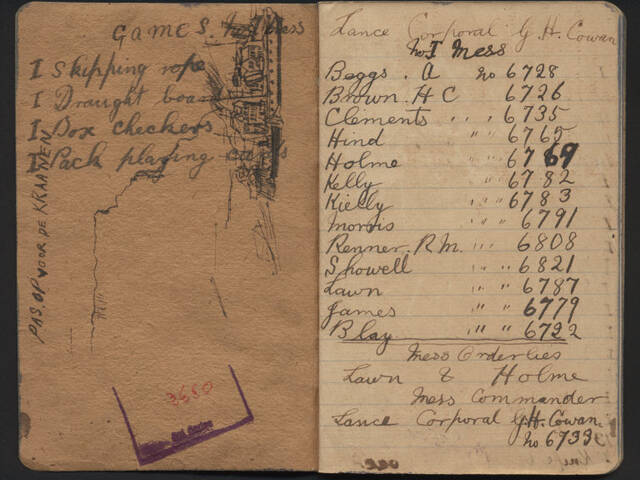 GAMES. No 1 Mess
I Skipping rope
I Draught board
I Box checkers
I Pack playing cards
PAS. OP VOOR DE KRAANEN
3650
Lance Corporal G. H. Cowan
No I Mess
Beggs. A No 6728
Brown. H C 6726
Clements " " 6735
Hind " " 6765
Holme " " 6769
Kelly " " 6782
Kielly " " 6783
Morris " " 6791
Renner. R.M. " " 6808
Showell " " 6821
Lawn " " 6787
James " " 6779
Blay " " 6722
Mess Orderlies
Lawn & Holme
Mess Commander
Lance Corporal G.H. Cowan
No 6733